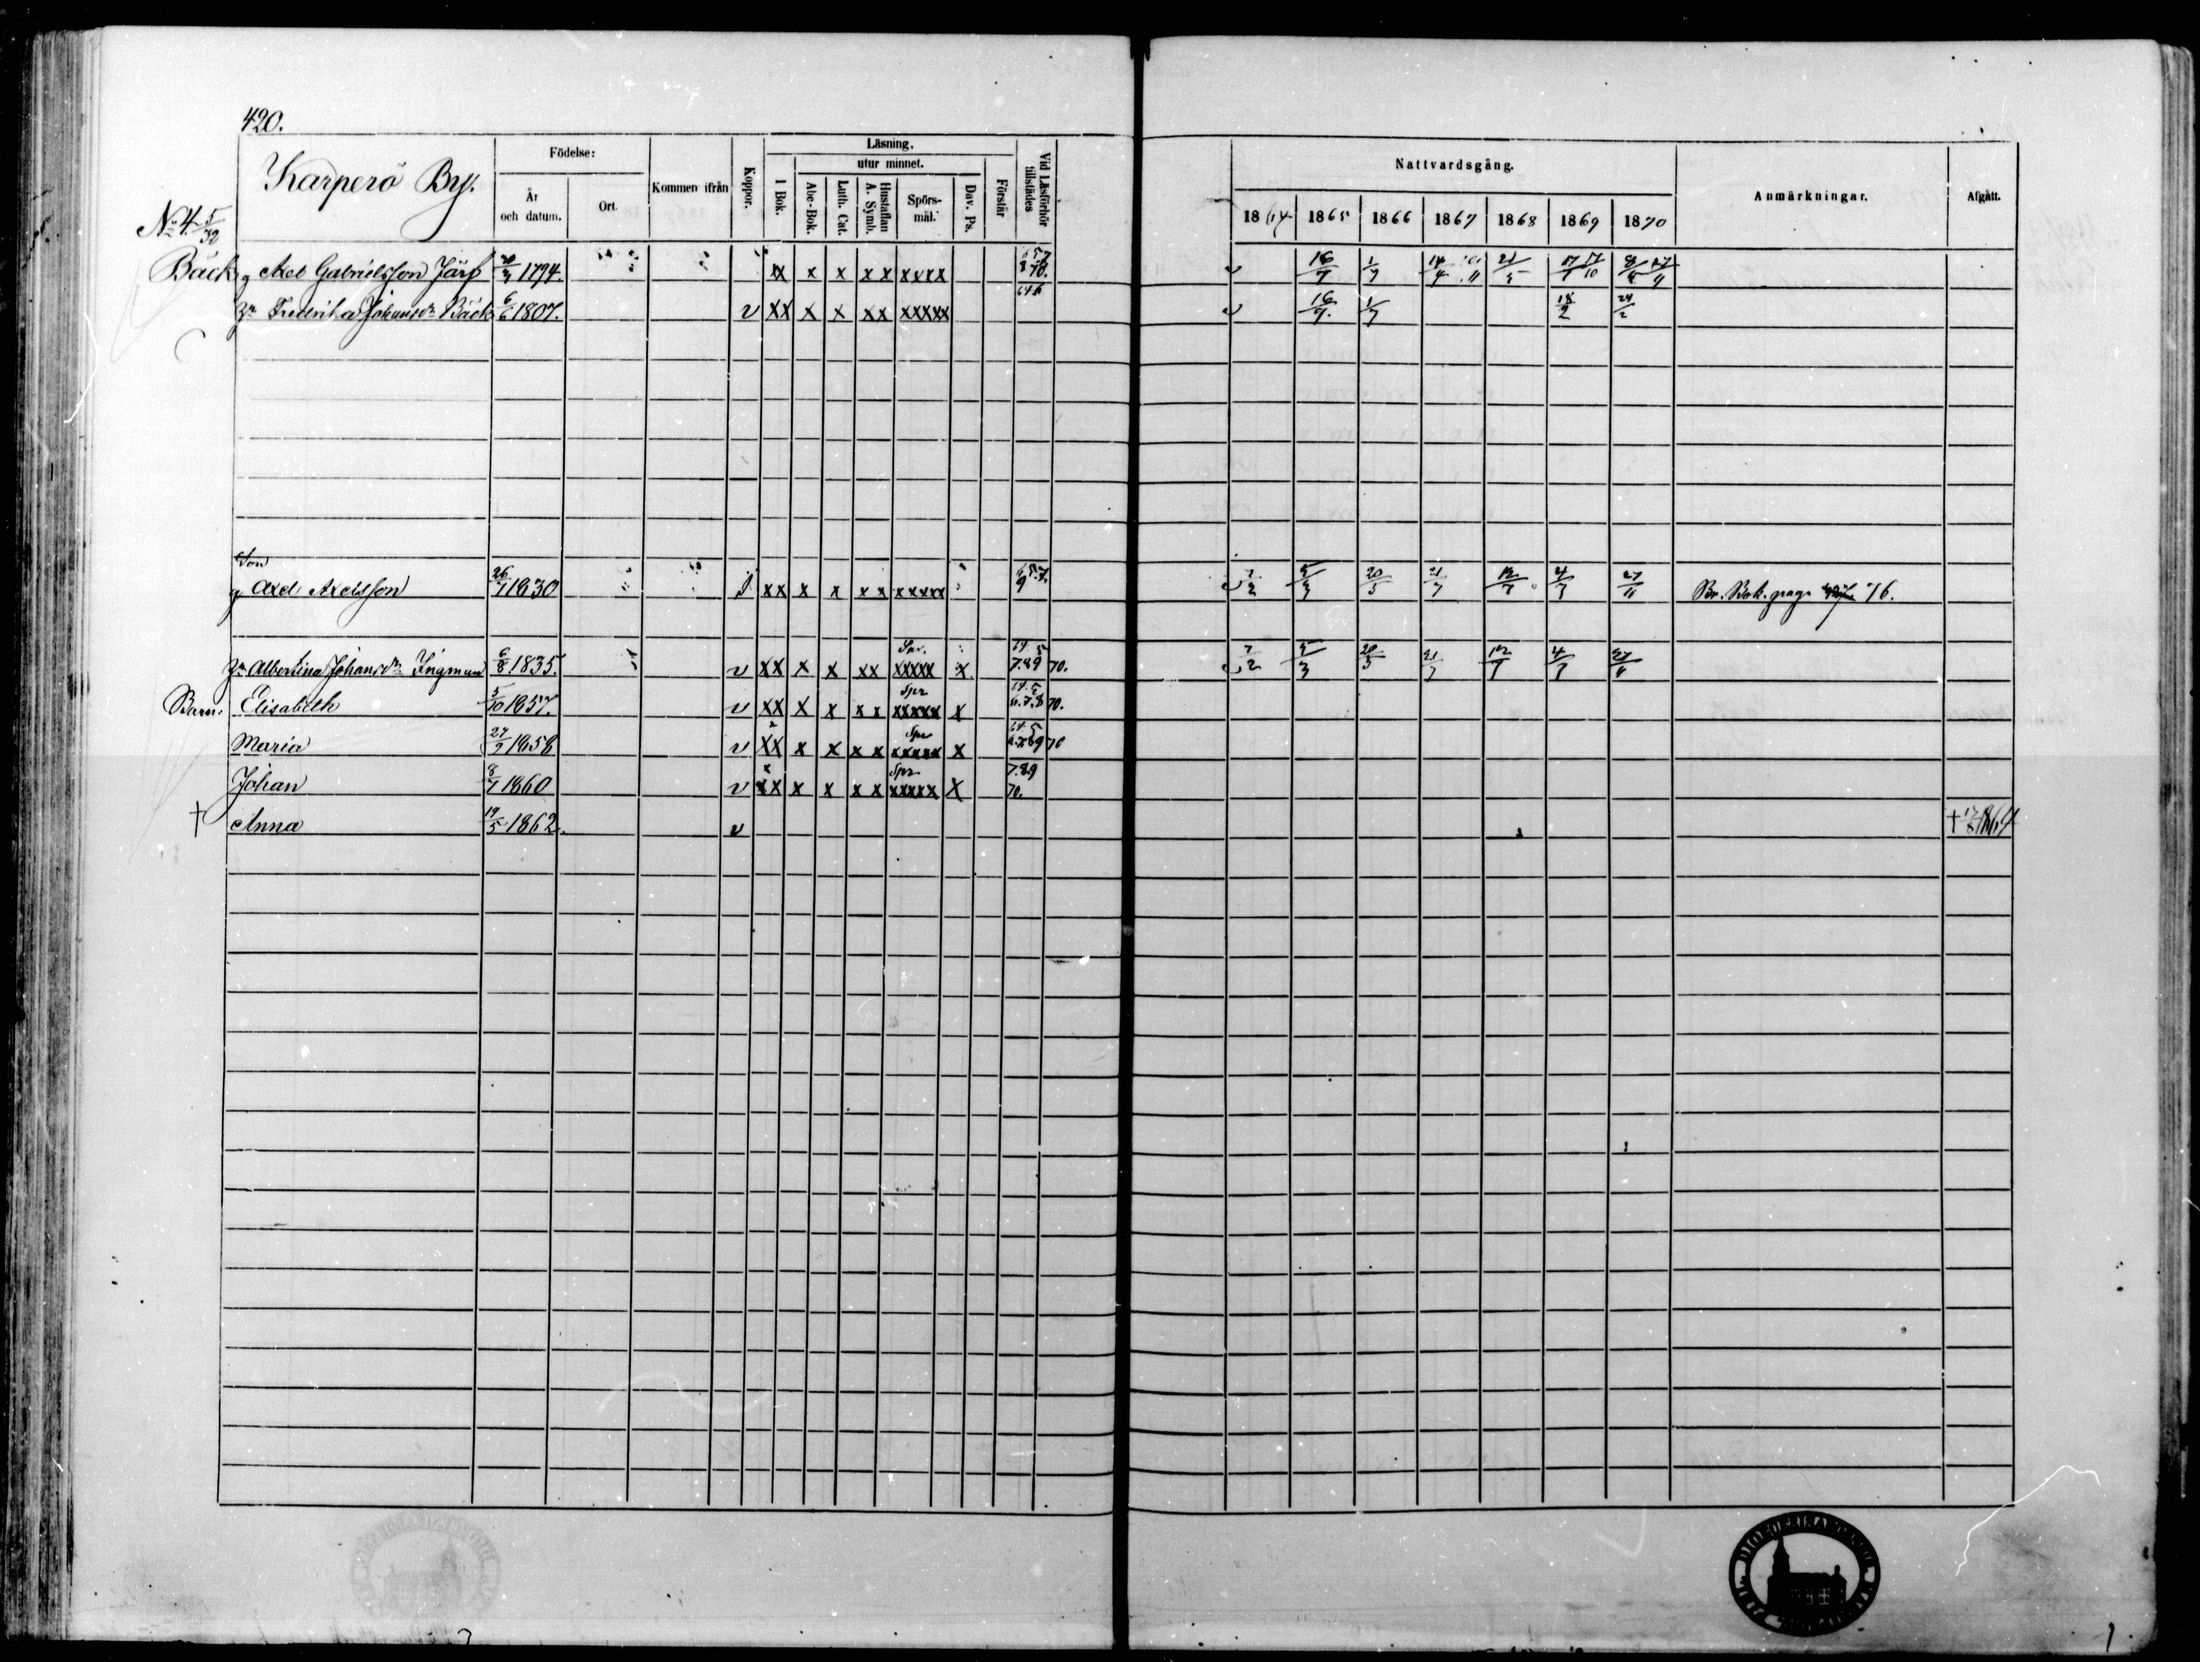 420.
Karperö By.
Födelse:
År och datum.
Ort.
Kommen ifrån
Koppor.
Läsning,
I Bok.
utur minnet.
Abc-Bok.
Luth. Cat.
Hustaflan A. Symb.
Spörs-mål.
Dav. Ps.
Förstår
Vid Läsförhör tillstädes
Nattvardsgång.
1864 1865 1866 1867 1868 1869 1870
Anmärkningar.
Afgått.
No 4. 5/32
Bäck g Axel Gabrielsson Järf 1794. xx x x xx xxxx 16/7 1/7 21/5
Fredrika Johansdr Bäck 6/6 1807. v xx x x xx xxxxx 16/7. 1/7 18/2 24/2
Son
g Axel Axelsson 26/7 1830 xx x x x x xxxxx 7/2 5/3 20/5 21/7 12/7 4/7 27/11 Br. Bok. pag. 76.
Albertina Johansdr Ingman 6/8 1835. v xx x x xx xxxxx x 7.89 70. 7/2 5/3 20/5 21/7 12/7 4/7 27/11
Barn: Elisabeth 5/10 1857. v xx x x x x Spr xxxxx x 6.7.8 70.
Maria 27/9 1858 v xx x x x x Spr xxxxx x 70
Johan 8/7 1860 v xx x x x x Spr xxxxx x 7.89 70.
† Anna 19/5 1862. v † 17/8 1864